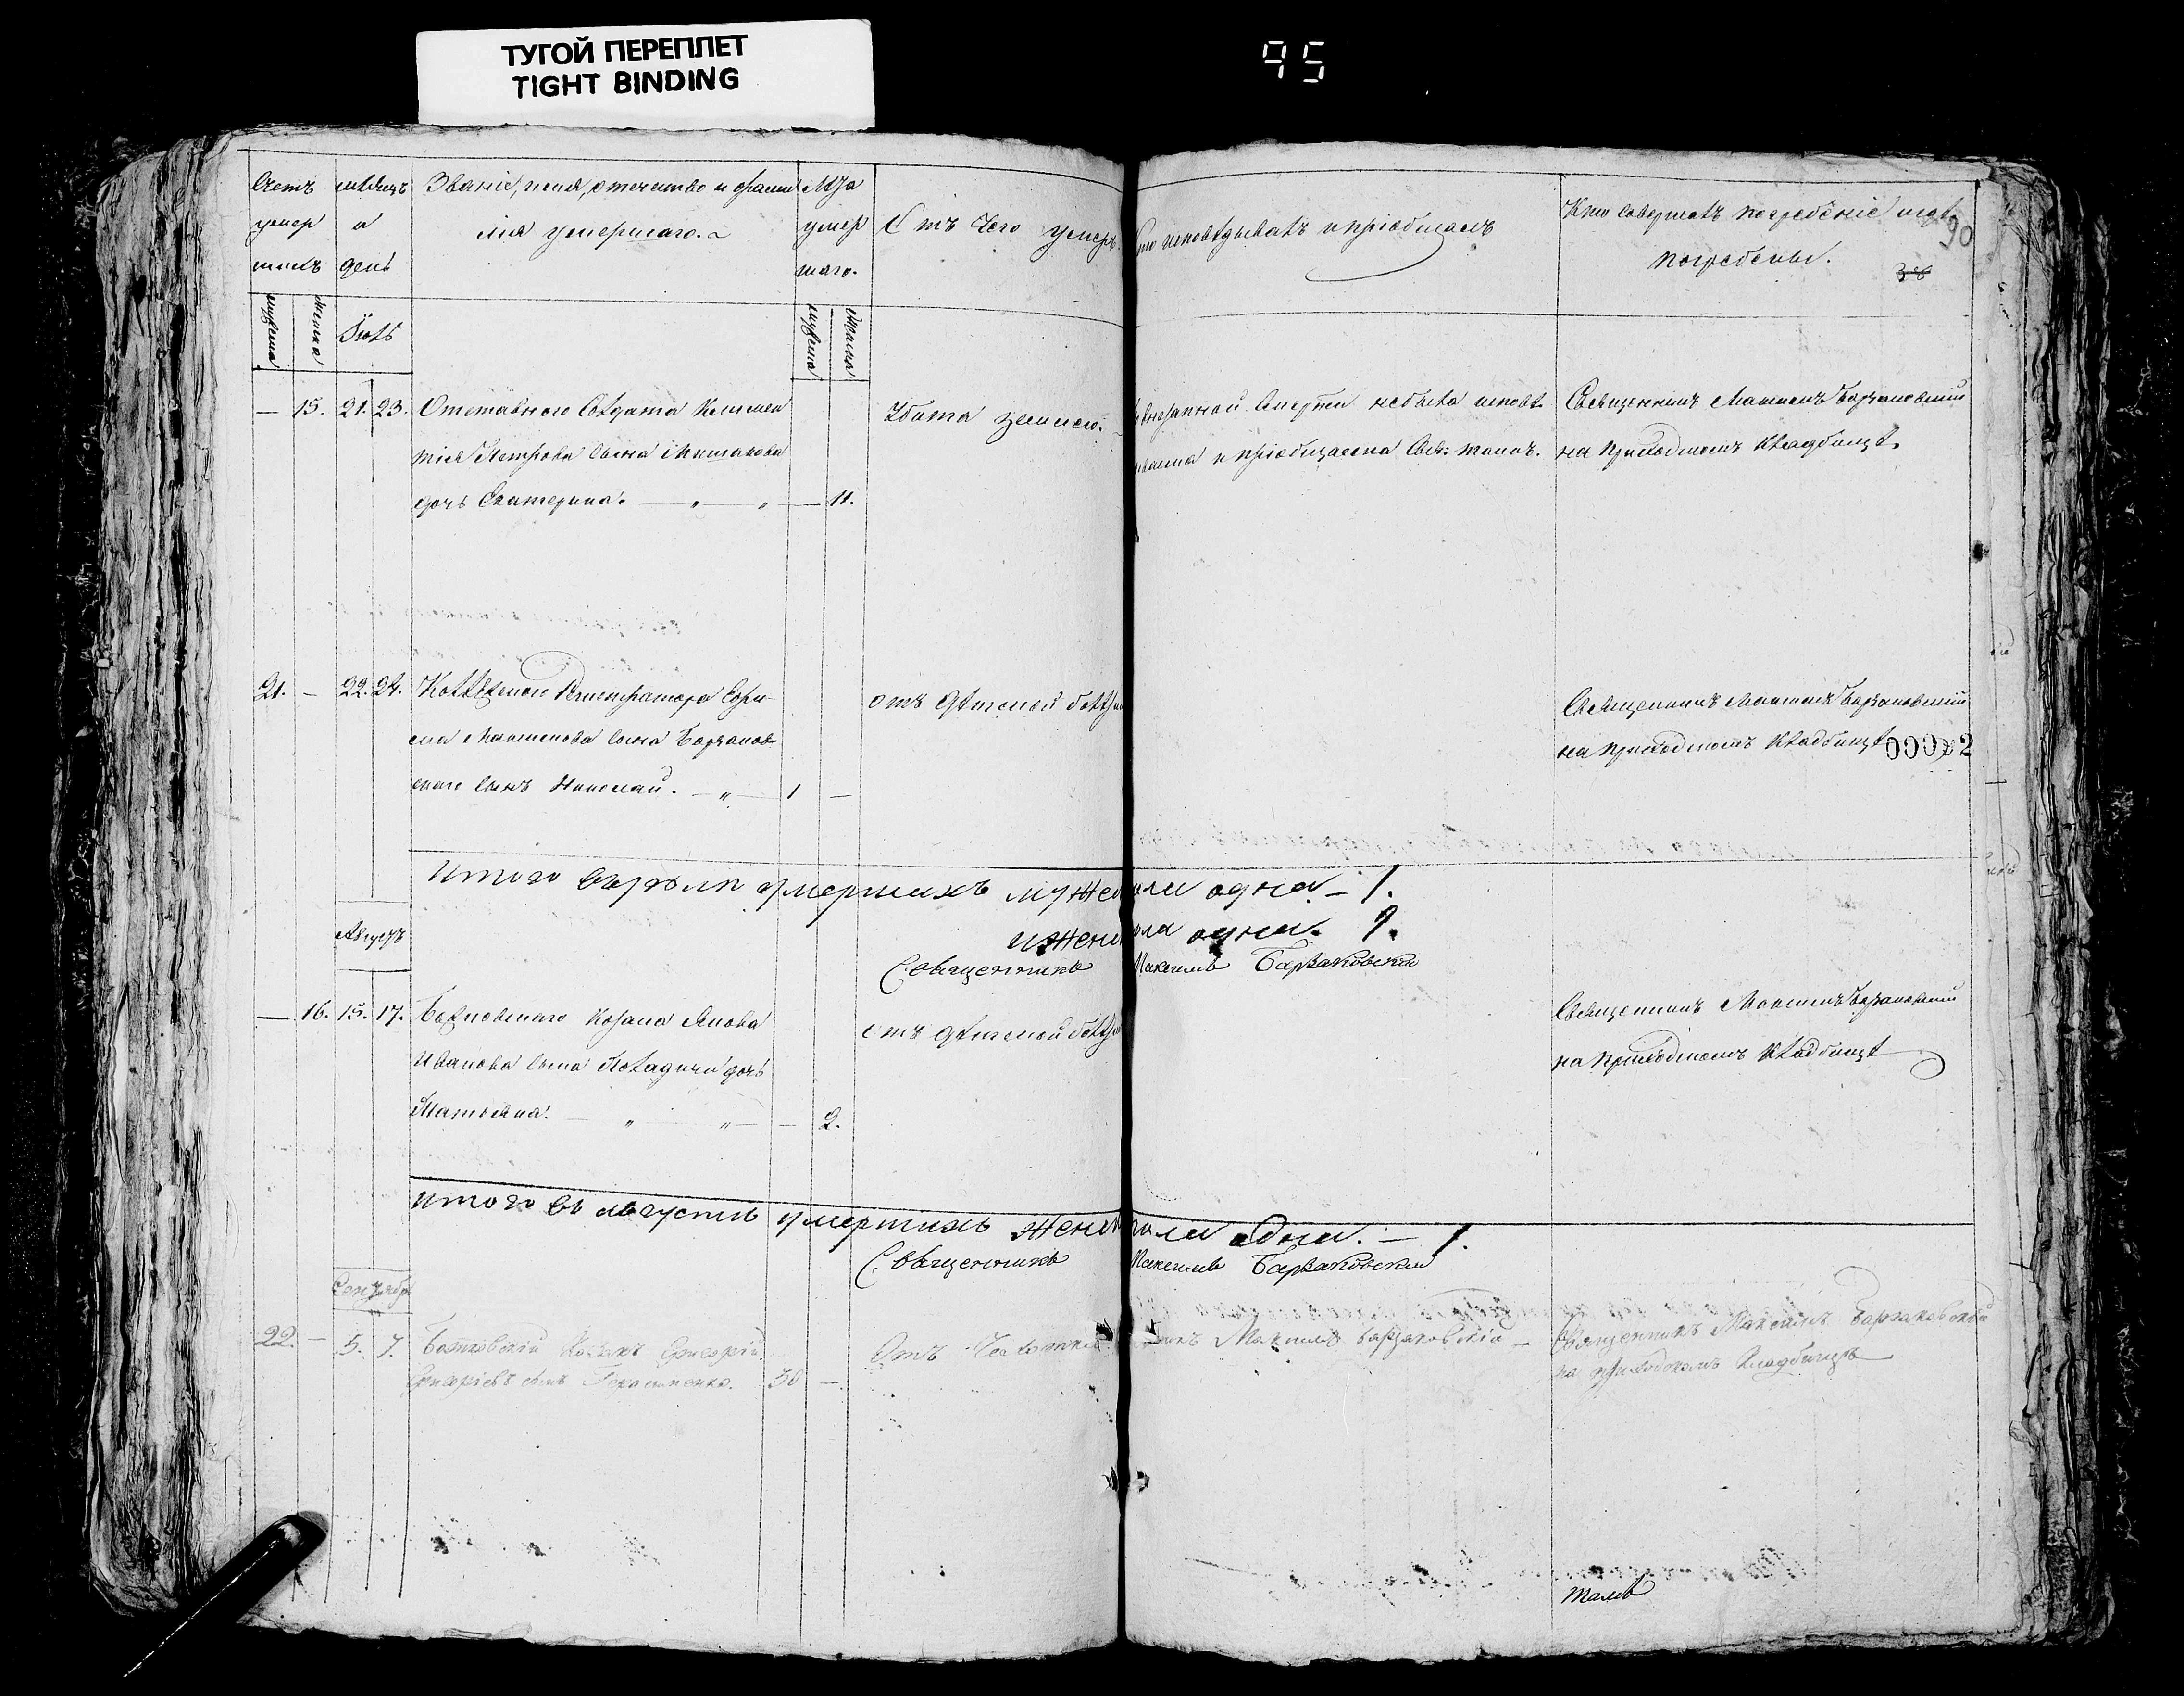 ТУГОЙ ПЕРЕПЛЕТ
TIGHT BINDING
95
Счетъ умер шихъ
мѣсяцъ и день
Званіе, имя, отечество и фами
лія умершаго.
Лѣта умер шаго.
Отъ чего умеръ.
Кто исповѣдывалъ и пріобщалъ
Кто совершалъ погребеніе и гдѣ
погребены.
90
38
мужеска
женска
Іюль
мужеска
женска
— 15. 21. 23. Отставнаго Солдата Климен
тія Петрова сына
дочь Екатерина. — " — " — 11.
Убита землею.
внезапной смерти небыла исповѣ
и пріобщаема Свя: таинъ.
Священникъ Максимъ Барзаковскій
на приходскомъ кладбищѣ.
21. — 22. 24. Коллѣжскаго Регистратора
Максимова сына Барзаков
скаго сынъ Николай. — " — 1 —
отъ дѣтской болѣзни
Священникъ Максимъ Барзаковскій
на приходскомъ кладбищѣ
Итого въ іюли умершихъ мужеска пола одна — 1.
и женска пола одна. 1.
Священникъ Максимъ Барзаковскій
Августъ
— 16. 15. 17. козака Якова
Иванова сына дочь
Татьяна. — " — " — — 2.
отъ дѣтской болѣзни
Священникъ Максимъ Барзаковскій
на приходскомъ кладбищѣ
Итого въ августѣ умершихъ женска пола одна. — 1.
Священникъ Максимъ Барзаковскій
Сентябрь
22. — 5. 7. козакъ Григорій
Григоріевъ сынъ Герасименко. 30 —
Отъ чахотки
Максимъ Барзаковскій —
Священникъ Максимъ Барзаковскій
на приходскомъ кладбищѣ